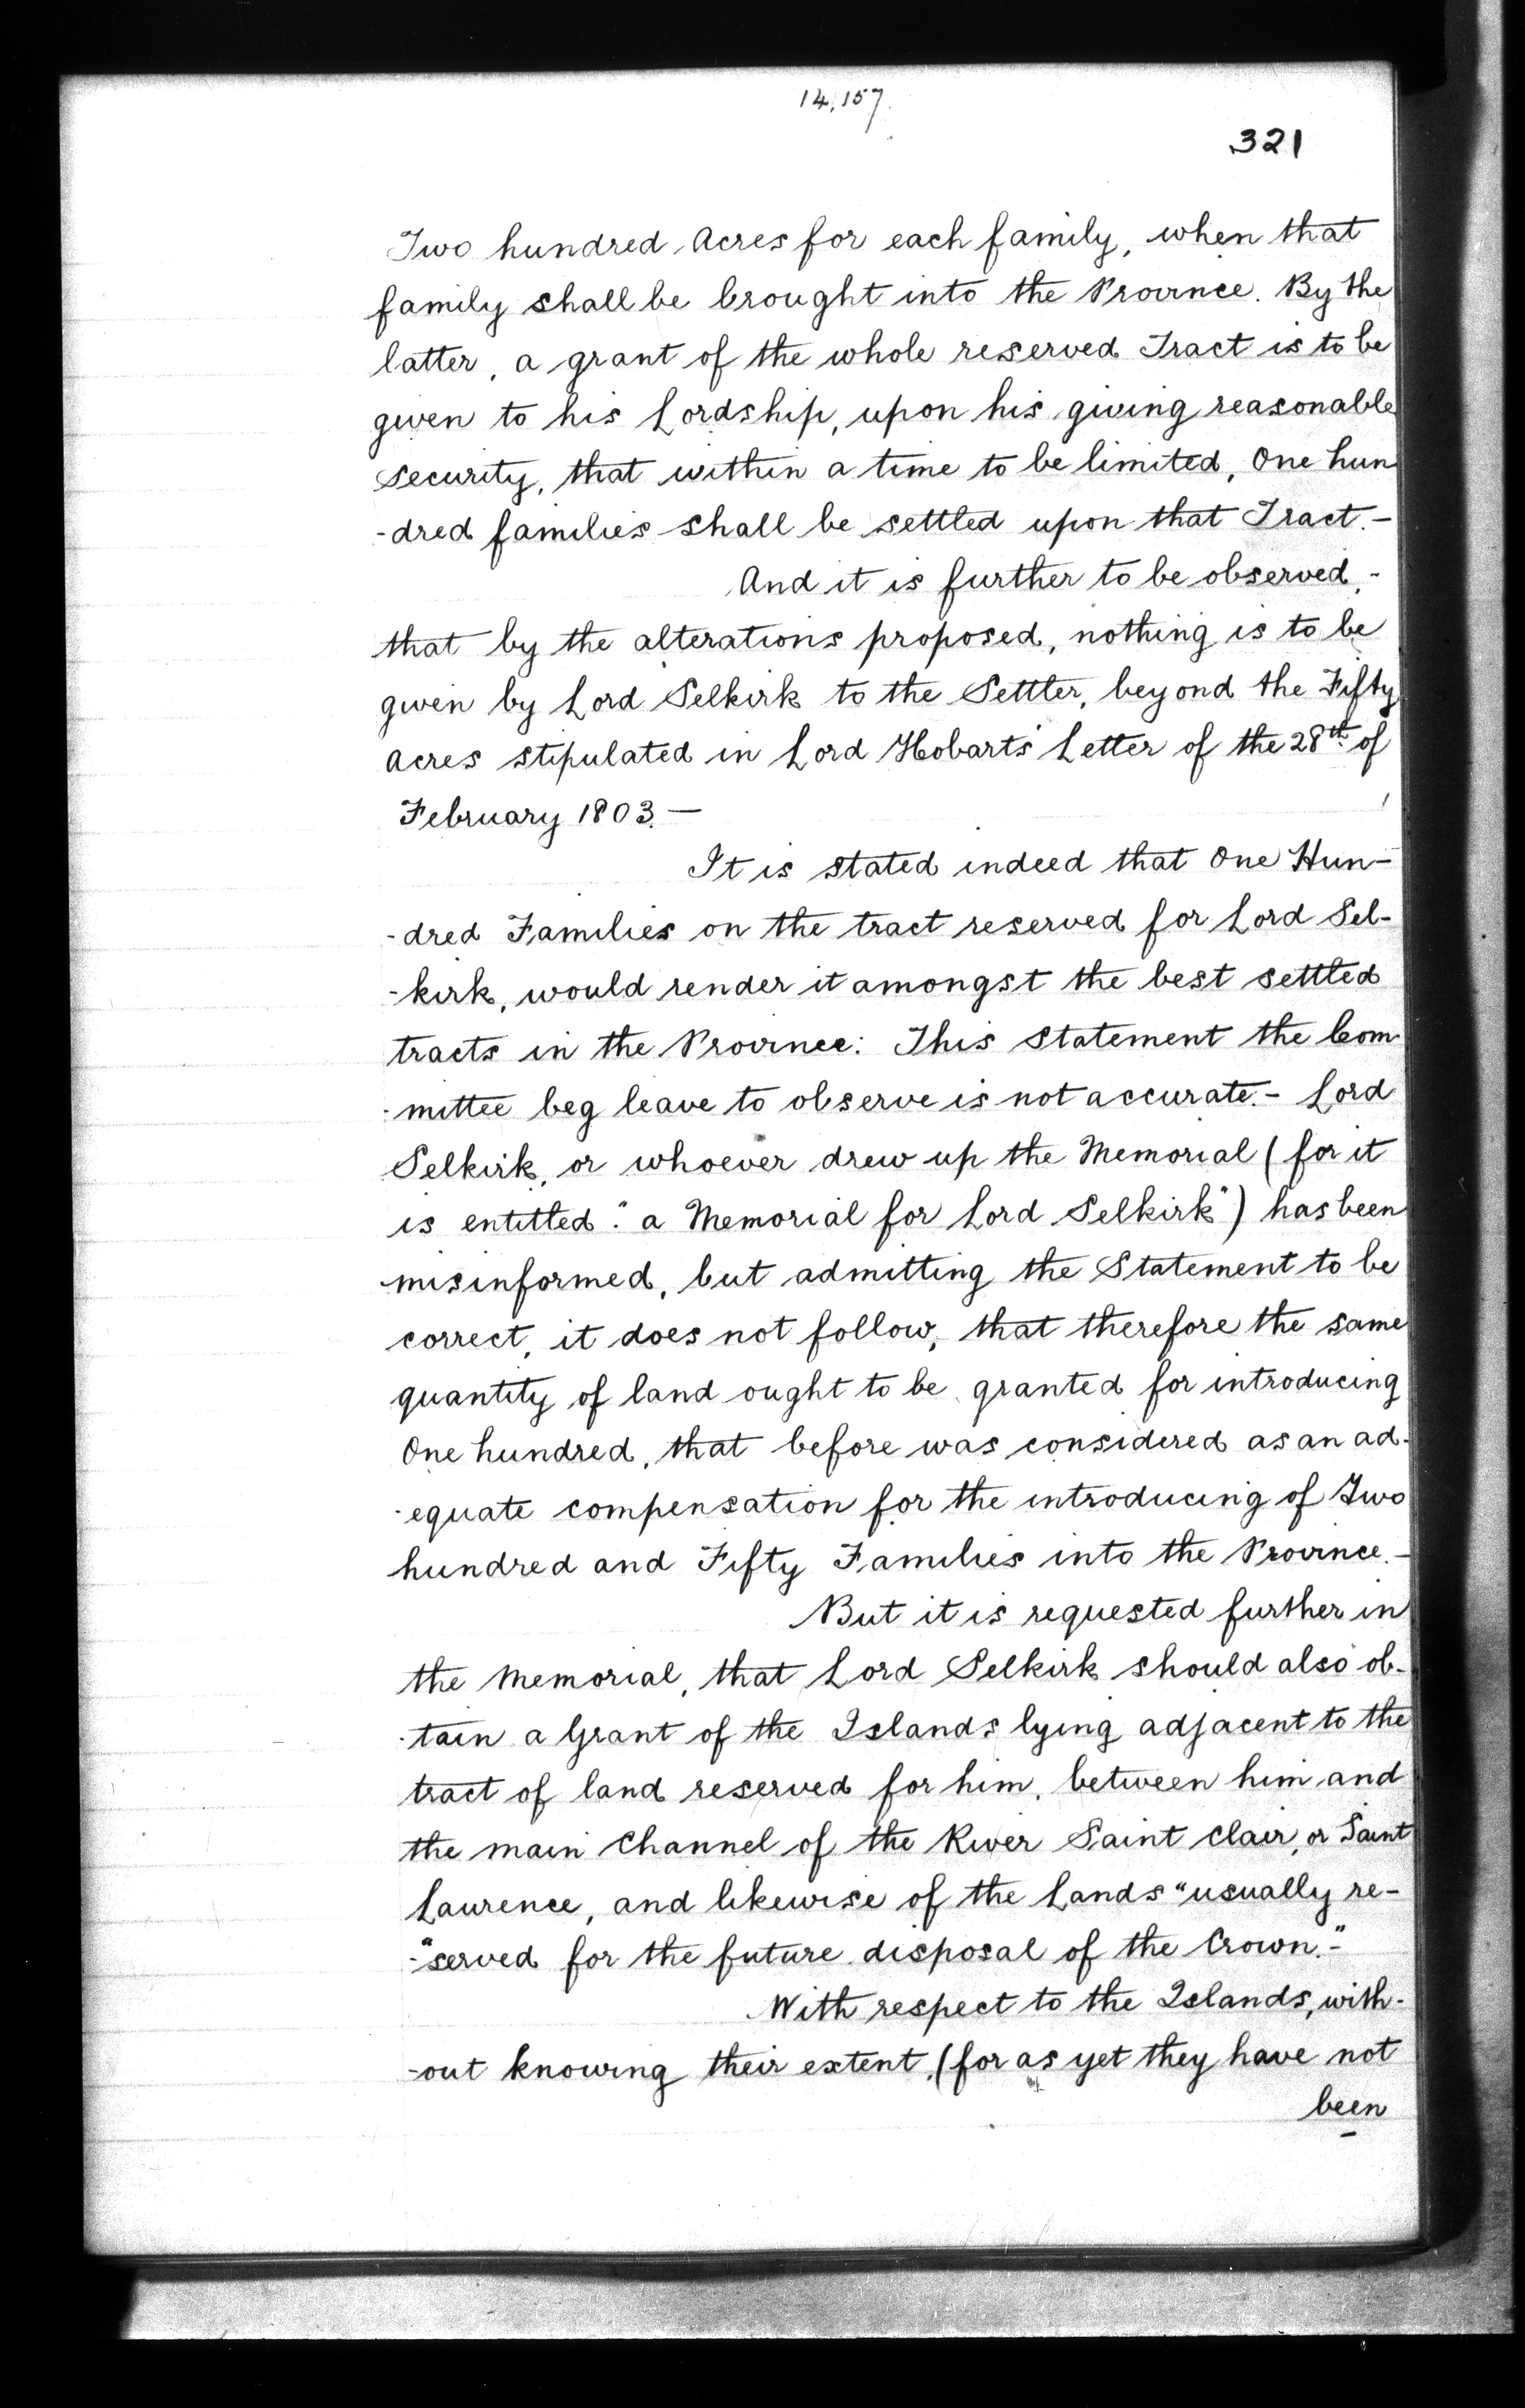 14,157
321
Two hundred Acres for each family, when that
family shall be brought into the Province. By the
latter, a grant of the whole reserved Tract is to be
given to his Lordship, upon his giving reasonable
security, that within a time to be limited, One hun
-dred families shall be settled upon that Tract.-
And it is further to be observed,-
that by the alterations proposed, nothing is to be
given by Lord Selkirk to the Settler, beyond the Fifty
acres stipulated in Lord Hobarts Letter of the 28th. of
February 1803.—
It is stated indeed that One Hun-
-dred Families on the tract reserved for Lord Sel-
-kirk, would render it amongst the best settled
tracts in the Province: This Statement the Com-
-mittee beg leave to observe is not accurate.- Lord
Selkirk, or whoever drew up the Memorial (for it
is entitled "a Memorial for Lord Selkirk") has been
misinformed, but admitting the Statement to be
correct, it does not follow, that therefore the same
quantity of land ought to be granted for introducing
One hundred, that before was considered as an ad-
-equate compensation for the introducing of Two
hundred and Fifty Families into the Province.-
But it is requested further in
the Memorial, that Lord Selkirk should also ob-
-tain a Grant of the Islands lying adjacent to the
tract of land reserved for him, between him and
the main Channel of the River Saint Clair, or Saint
Laurence, and likewise of the Lands "usually re-
-"served for the future disposal of the Crown."-
With respect to the Islands, with-
-out knowing their extent, (for as yet they have not
been